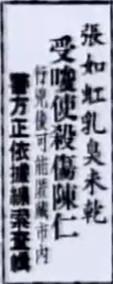 張如虹乳臭未乾
受嗾使殺傷陳仁
行兇後可能潛藏市內
警方正依據線索查緝